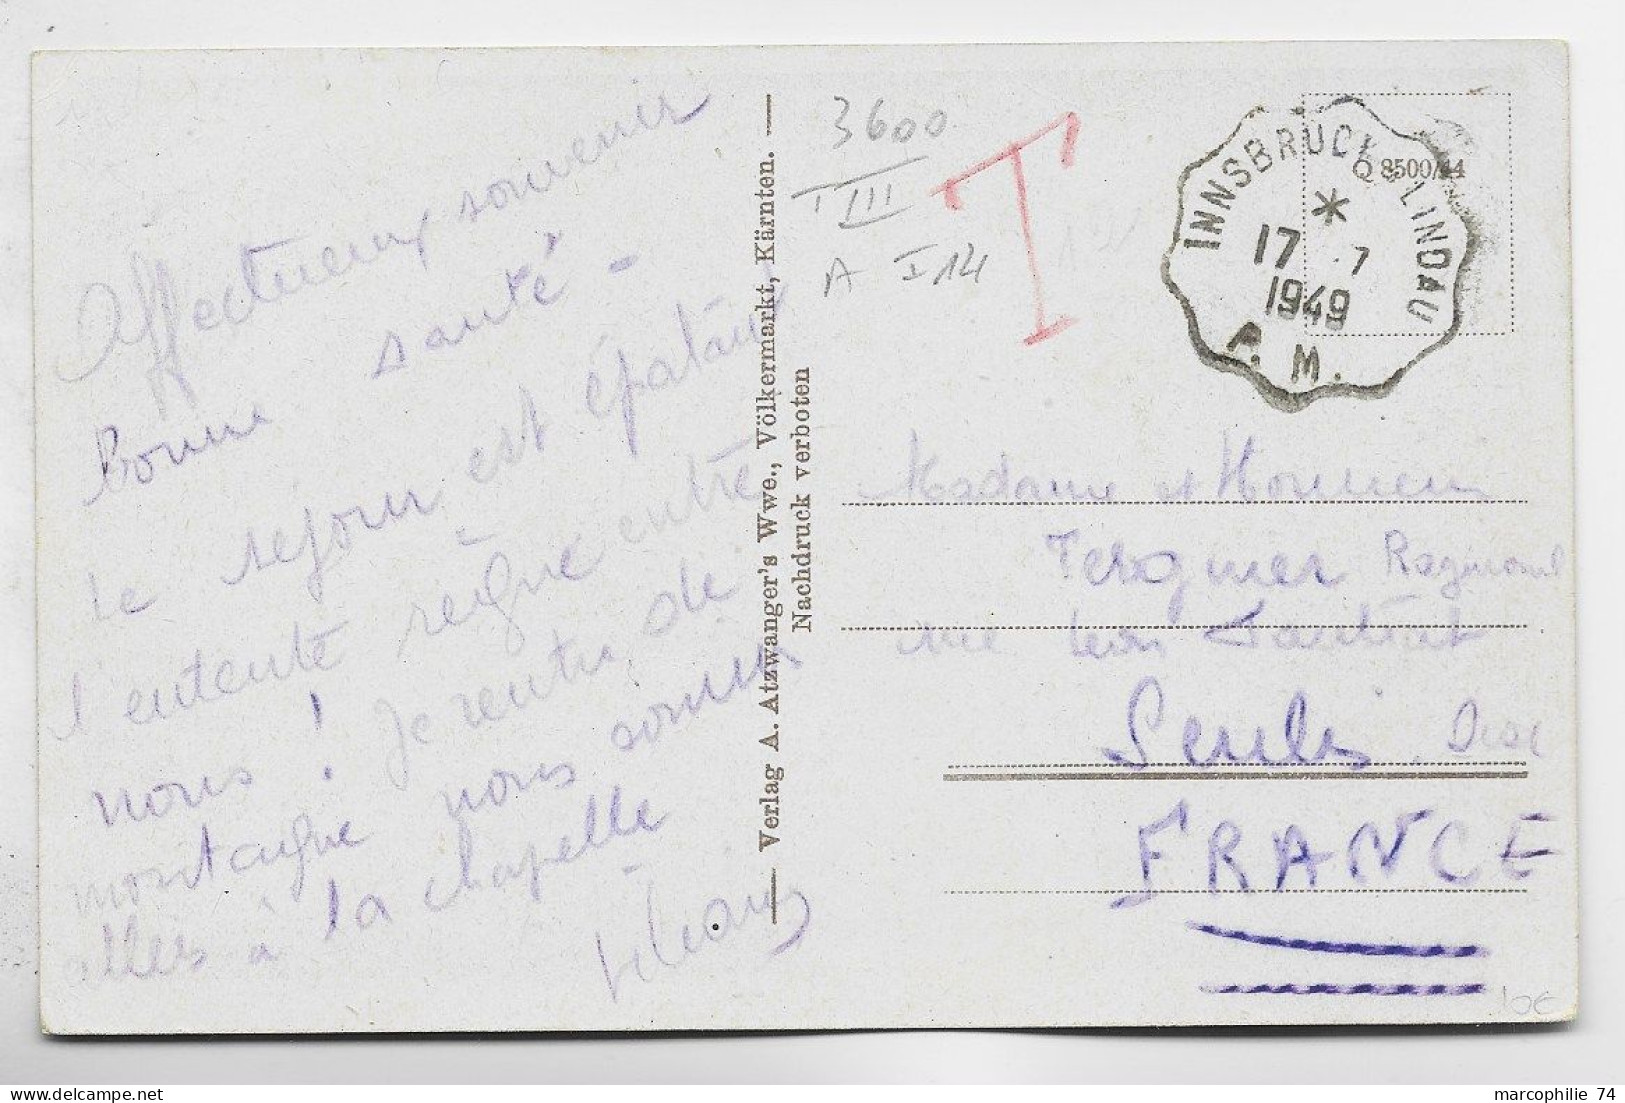 Affectueux souvenir
bonne santé -
Le séjour est épatant
l'entente règne entre
nous ! Je rentre de
montagne nous sommes
allés à la chapelle
Verlag A. Atzwanger's Wwe., Völkermarkt, Kärnten.
Nachdruck verboten
3600
TIII
A I 14
T
INNSBRUCK * LINDAU
*
17 .7
1949
P. M.
Q 8500/44
Madame et Monsieur
Raymond
rue Léon
Senlis Oise
FRANCE
10€
marcophilie 74